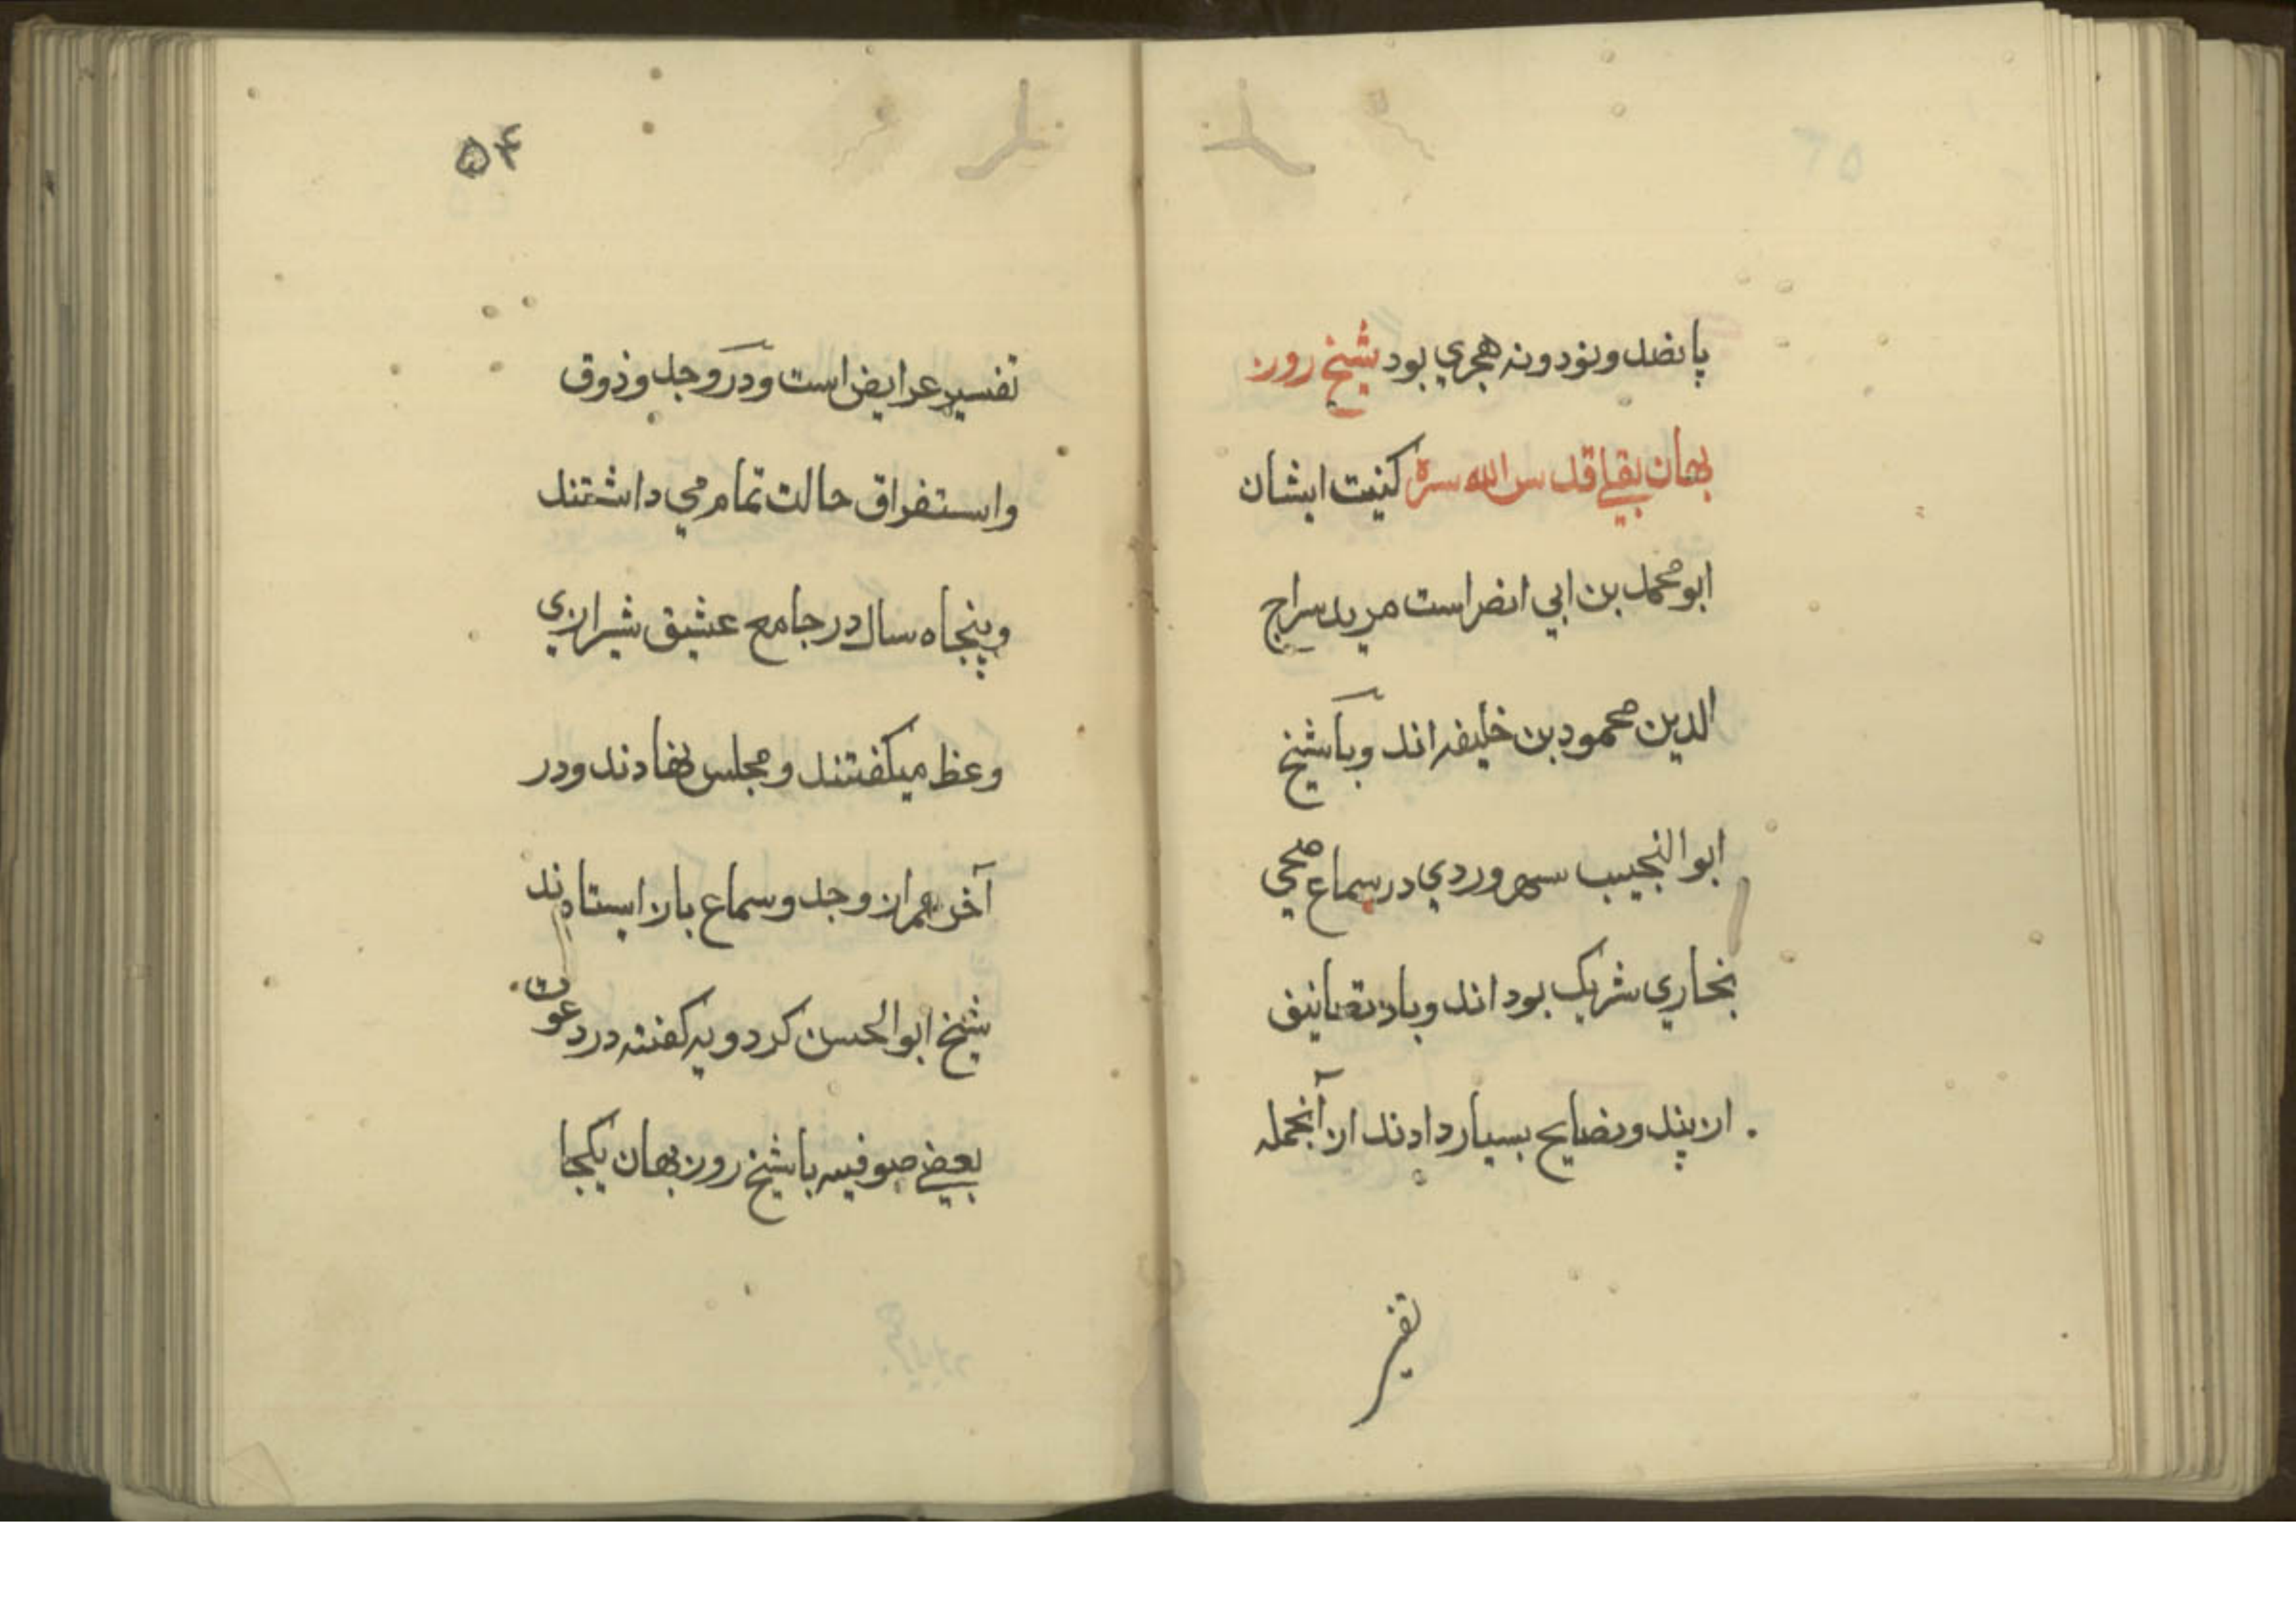 پانصد و نود و نه هجري بود شيخ روز
بهان بقلي قدس الله سره كنيت ايشان
ابو محمد بن ابي انصر است مريد سراج
الدين محمود بن خليفه اند و با شيخ
ابو النجيب سهروردي در سماع صحي
بخاري شريك بود اند و باد تصانيف
از پند و نصايح بسيار دادند از آنجمله
تفسير
۵۴
تفسير عرايض است و در وجد و ذوق
و استفراق حالت تمام مي داشتند
و پنجاه سال در جامع عشيق شيرازي
وعظ ميكفتند و مجلس نهادند و در
آخر عمر از وجد و سماع باز ايستادند
شيخ ابو الحسن كردويه كفته در دعوت
بعضي صوفيه با شيخ روز بهان يكجا